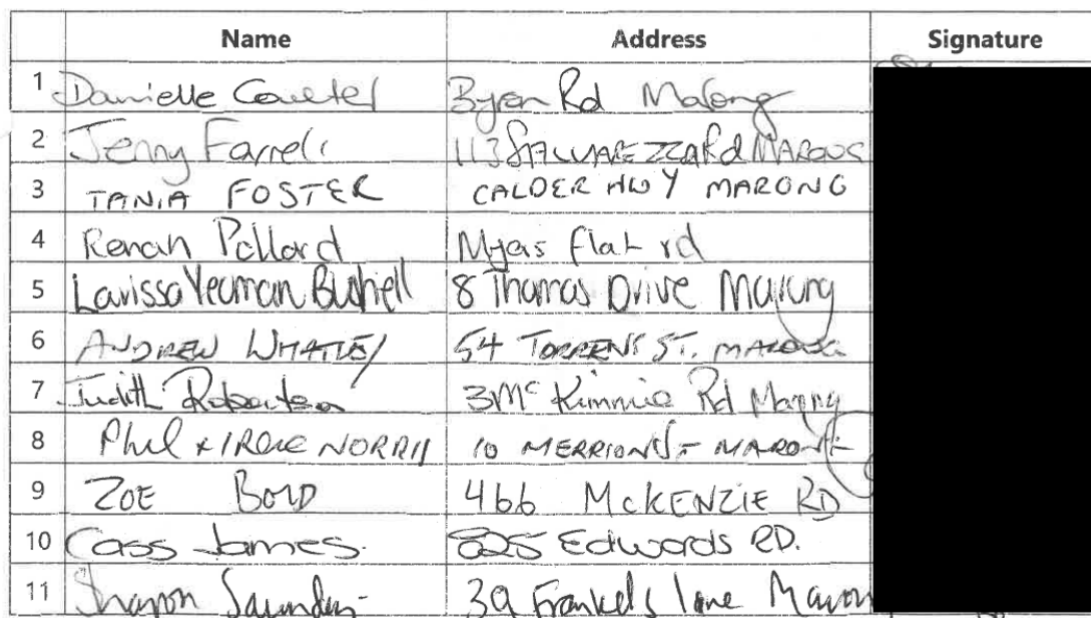 Name Address Signature
1 Danielle Coulter Byron Rd Marong
2 Jenny Farrell 113 Rd MARONG
3 TANIA FOSTER CALDER HWY MARONG
4 Renah Pollard Myers flat rd
5 Larissa Yeoman Bushell 8 Thomas Drive Marong
6 ANDREW WHATLEY 54 TORRENS ST. MARONG
7 Judith Robertson 3 McKimmie Rd Marong
8 Phil & IRENE NORRIS 10 MERRION ST MARONG
9 ZOE 466 McKENZIE RD
10 Cass James. 825 Edwards RD.
11 Sharon Saunders 39 Frankels lane Marong